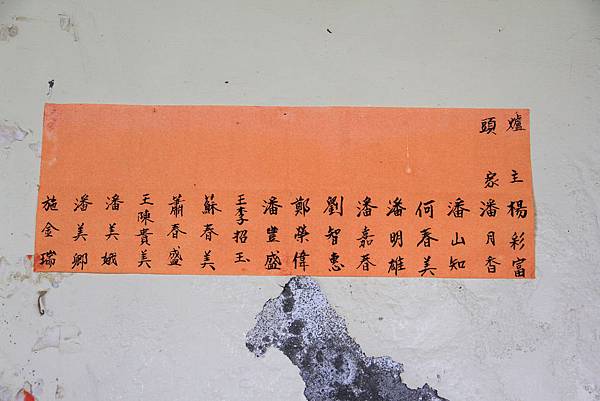 爐主 楊彩富
頭家 潘月香
潘山知
何春美
潘明雄
潘嘉春
劉智惠
鄭榮偉
潘豐盛
王李招玉
蘇春美
蕭春盛
王陳貴美
潘美娥
潘美鄉
施金瑞